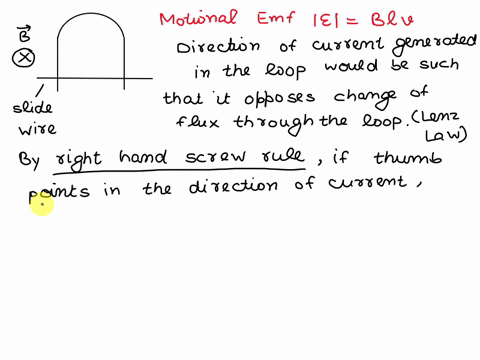 Motional Emf |ε| = Blv
B
Direction of current generated
in the loop would be such
that it opposes change of
flux through the loop. (Lenz
Law)
slide
wire
By right hand screw rule, if thumb
points in the direction of current,